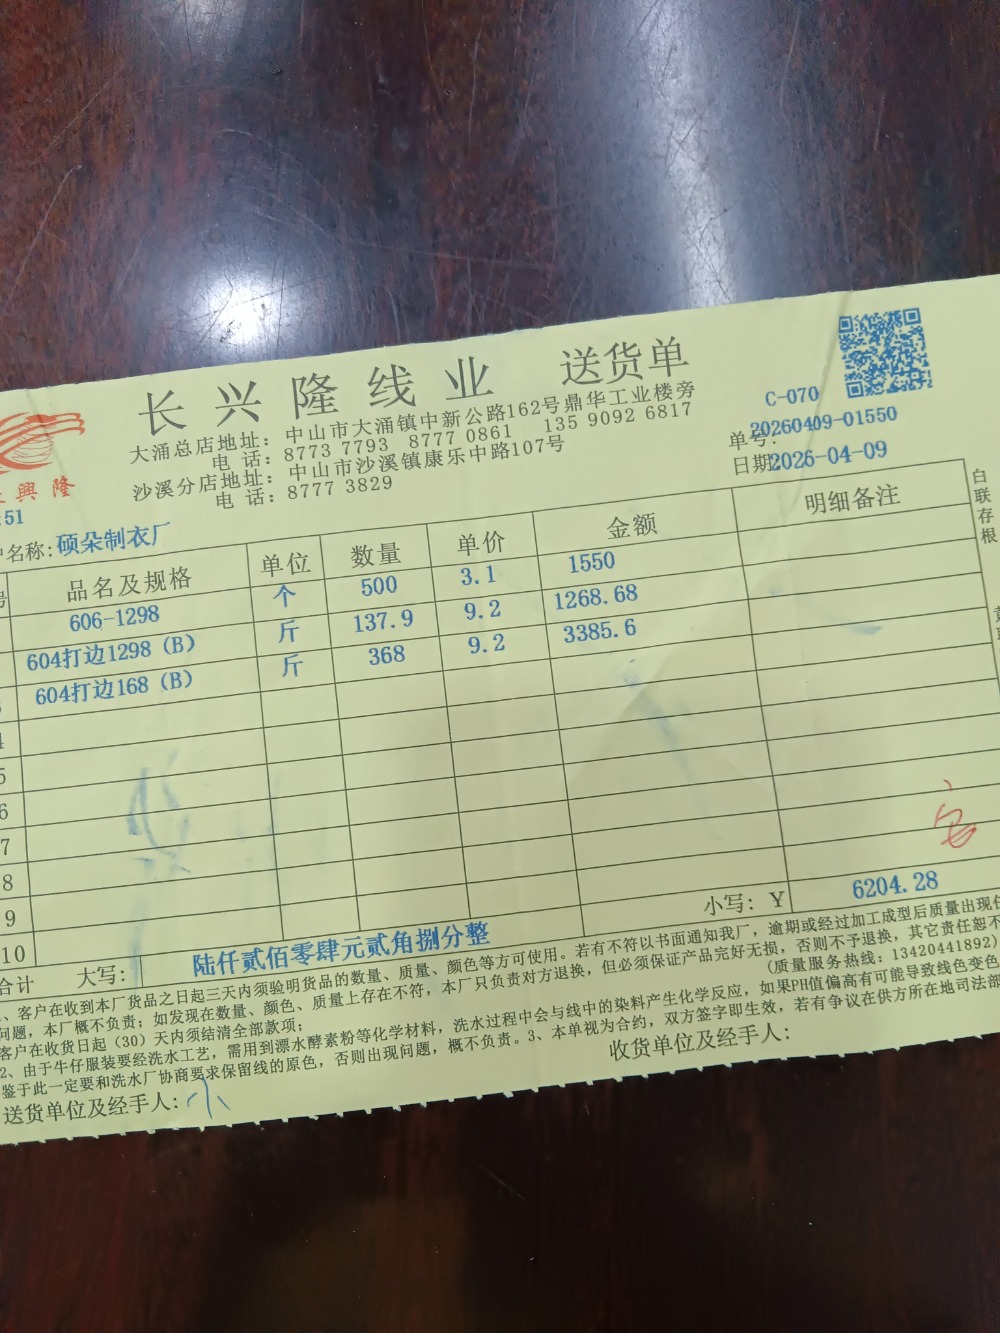 长兴隆线业 送货单
C-070
大涌总店地址：中山市大涌镇中新公路162号鼎华工业楼旁
电 话：8773 7793 8777 0861 135 9092 6817
沙溪分店地址：中山市沙溪镇康乐中路107号
电 话：8777 3829
單号：20260409-01550
日期2026-04-09
興隆
51
名称：硕朵制衣厂
品名及规格 单位 数量 单价 金额 明细备注
606-1298 个 500 3.1 1550
604打边1298（B） 斤 137.9 9.2 1268.68
604打边168（B） 斤 368 9.2 3385.6
4
5
6
7
8
9
10
小写：¥ 6204.28
合计 大写：陆仟贰佰零肆元贰角捌分整
白联存根
客
、客户在收到本厂货品之日起三天内须验明货品的数量、质量、颜色等方可使用。若有不符以书面通知我厂，逾期或经过加工成型后质量出现任
问题，本厂概不负责；如发现在数量、颜色、质量上存在不符，本厂只负责对方退换，但必须保证产品完好无损，否则不予退换，其它责任恕不
客户在收货日起（30）天内须结清全部款项；（质量服务热线：13420441892）
2、由于牛仔服装要经洗水工艺，需用到漂水酵素粉等化学材料，洗水过程中会与线中的染料产生化学反应，如果PH值偏高有可能导致线色变色
鉴于此一定要和洗水厂协商要求保留线的原色，否则出现问题，概不负责。3、本单视为合约，双方签字即生效，若有争议在供方所在地司法部
送货单位及经手人： 收货单位及经手人：